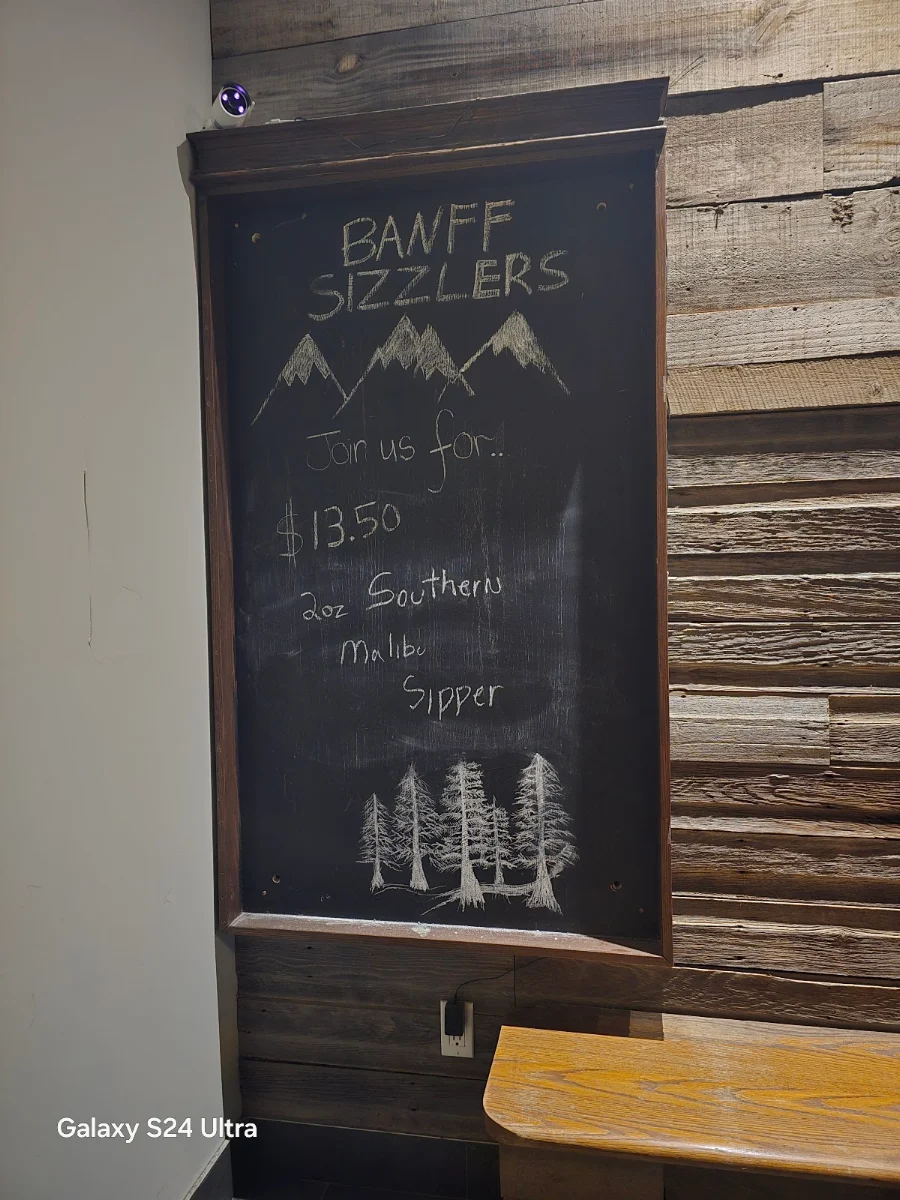 BANFF
SIZZLERS
Join us for..
$13.50
2oz Southern
Malibu
Sipper
Galaxy S24 Ultra